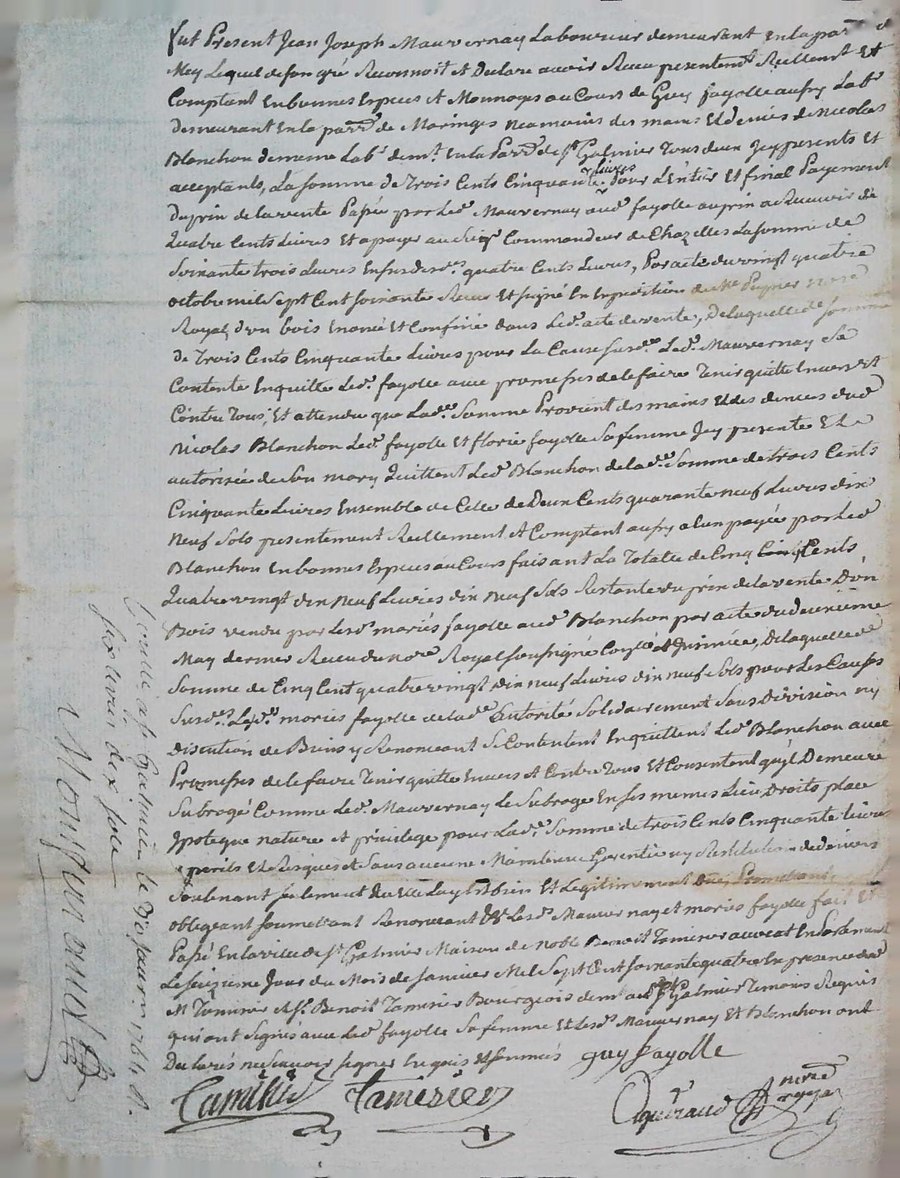 fut Present Jean Joseph Mauvernay Laboureur demeurant En la par
Mey Lequel de son gré Reconnoit et Declare avoir Receu presentemt Reellemt Et
Comptant En bonnes Especes et Monnoyes au Cours de Guy fayolle aussy Labr
Demeurant En la parre de Maringes Neamoins des mains Et deniers de Nicolas
Blanchon de meme Labr demt En la Parre de st Galmier Tous deux Jcy presents Et
acceptants, La somme De Trois Cents Cinquante livres Pour L'Entier Et final Payement
Du prix de la vente Passée par Led. Mauvernay aud fayolle au prix
Quatre Cents Livres Et a payer au Commandeur de Chazelles La somme de
Soixante trois Livres En susd. quatre Cents Livres, Par acte du vingt quatre
octobre mil Sept Cent soixante Receu Et signé En Expedition
Royal, d'un bois Enoncé Et Confiné dans Led. acte de vente, De laquelle de somme
de Trois Cents Cinquante Livres pour La Cause susd. Led. Mauvernay Se
Contente En quitte Led. fayolle avec promesses de le faire Tenir quitte Envers et
Contre Tous, Et attendu que Lade Somme Provient des mains Et des deniers dud
Nicolas Blanchon Led. fayolle Et florie fayolle Sa femme Jcy presente Et
autorisée de son mary Quittent Led. Blanchon de lade Somme de trois Cents
Cinquante Livres Ensemble de Celle de Deux Cents quarante neuf Livres dix
Neuf Sols presentement Reellement et Comptant aussy a Eux payée par Led
Blanchon En bonnes Especes au Cours faisant La Totalle de Cinq Cents
Quatre vingt dix Neuf Livres dix Neuf Sols Restante du prix de la vente D'un
Bois vendu par Lesd. mariés fayolle aud. Blanchon par acte du deuxieme
May dernier Receu du nore Royal soussigné, De laquelle de
Somme de Cinq Cent quatre vingt Dix neuf Livres dix neuf Sols pour Les Causes
Susd. Lesd. mariés fayolle de lade Autorité Solidairement Sans Division ny
discution de Biens y Renonceant Se Contentent En quittent Led. Blanchon avec
Promesses de le faire Tenir quitte Envers et Contre Tous Et Consentent qu'il Demeure
Subrogé Comme Led. Mauvernay Le Subroge En ses memes Lieu, Droits place
Ypoteque nature et privilege pour Lade Somme de trois Cents Cinquante livres
perils Et Risques et Sans aucune Maintenue Garentie ny Restitution de deniers
Soutenant seulement Bien Et Legitimement Promettant,
obligeant soumettant Renonceant Lesd. Mauvernay et mariés fayolle fait Et
Passé En la ville de st Galmier Maison de noble Benoit Tamisier avocat En Parlement
Le seizieme Jour du Mois de Janvier Mil Sept Cent soixante quatre En presence dud
M Tamisier et Sr Benoit Tamisier Bourgeois demt aud st Galmier Temoins Requis
qui ont signés avec Led fayolle Sa femme Et Lesd. Mauvernay Et Blanchon ont
Declarés ne Scavoir signer Enquis Et sommés guy fayolle
Tamisier Tamisier
nore
royal
Controllé a st Galmier le 1764 R.
sols